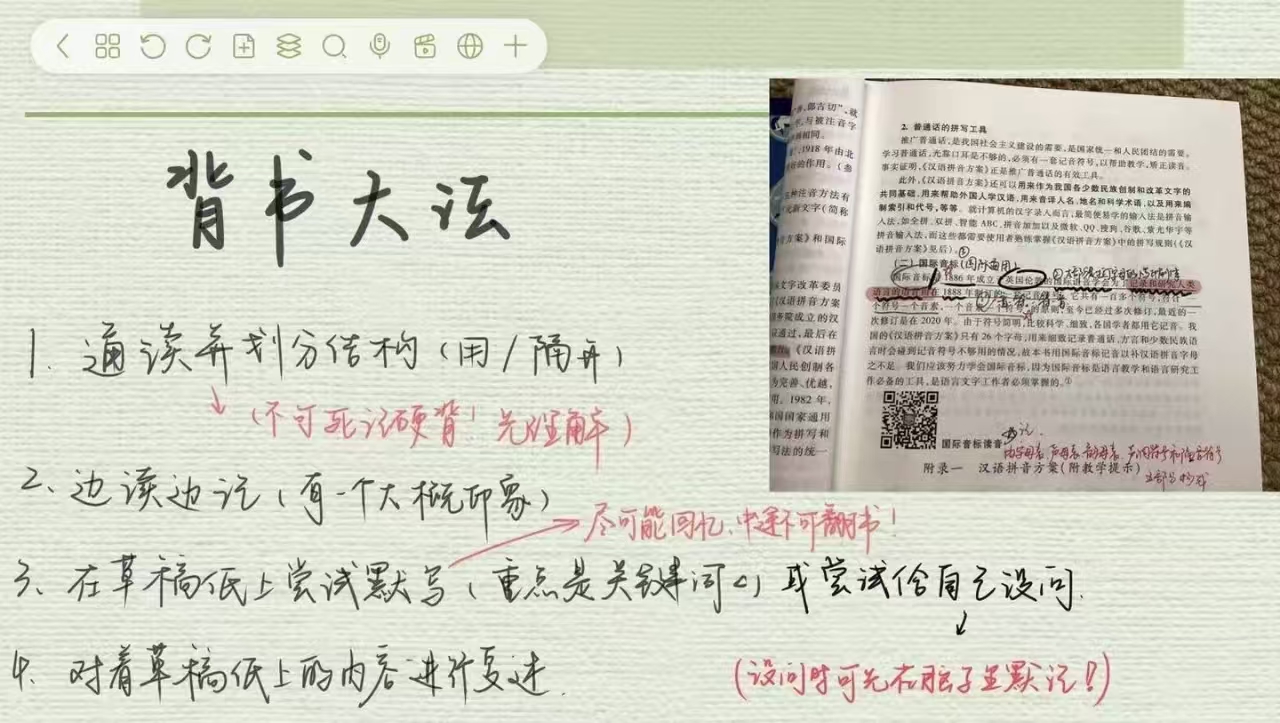 背书大法
1. 通读并划分结构(用/隔开)
↓(不可死记硬背!先理解)
2、边读边记(有一个大概印象)
→尽可能回忆、中途不可翻书!
3、在草稿纸上尝试默写(重点是关键词句)或尝试给自己设问.
↓
(设问时可先在脑子里默记!)
4. 对着草稿纸上的内容进行复述.
2. 普通话的拼写工具
推广普通话,是我国社会主义建设的需要,是国家统一和人民团结的需要。
学习普通话,光靠口耳是不够的,必须有一套记音符号,以帮助教学,矫正读音。
事实证明,《汉语拼音方案》还是推广普通话的有效工具。
此外,《汉语拼音方案》还可以用来作为我国各少数民族创制和改革文字的
共同基础,用来帮助外国人学汉语,用来音译人名、地名和科学术语,以及用来编
制索引和代号,等等。就计算机的汉字录入而言,最简便易学的输入法是拼音输
入法,如全拼、双拼、智能 ABC、拼音加加以及微软、QQ、搜狗、谷歌、紫光华宇等
拼音输入法,而这些都需要使用者熟练掌握《汉语拼音方案》中的拼写规则(《汉
语拼音方案》见后)。
(二)国际音标(国际通用)
国际音标 1886年成立 英国伦敦的国际语音学会为了记录和研究人类
语言的语音而在 1888 年制订的 它共有一百多个符号,
个符号一个音素,一个音素一个符号 的原则,至今已经过多次修订,最近的一
次修订是在 2020 年。由于符号简明,比较科学、细致,各国学者都用它记音。我
国的《汉语拼音方案》只有 26 个字母,用来细致记录普通话、方言和少数民族语
言时会碰到记音符号不够用的情况,故本书用国际音标记音以补汉语拼音字母
之不足。我们应该努力学会国际音标,因为国际音标是语言教学和语言研究工
作必备的工具,是语言文字工作者必须掌握的。①
国际音标读音
附录一 汉语拼音方案(附教学提示)